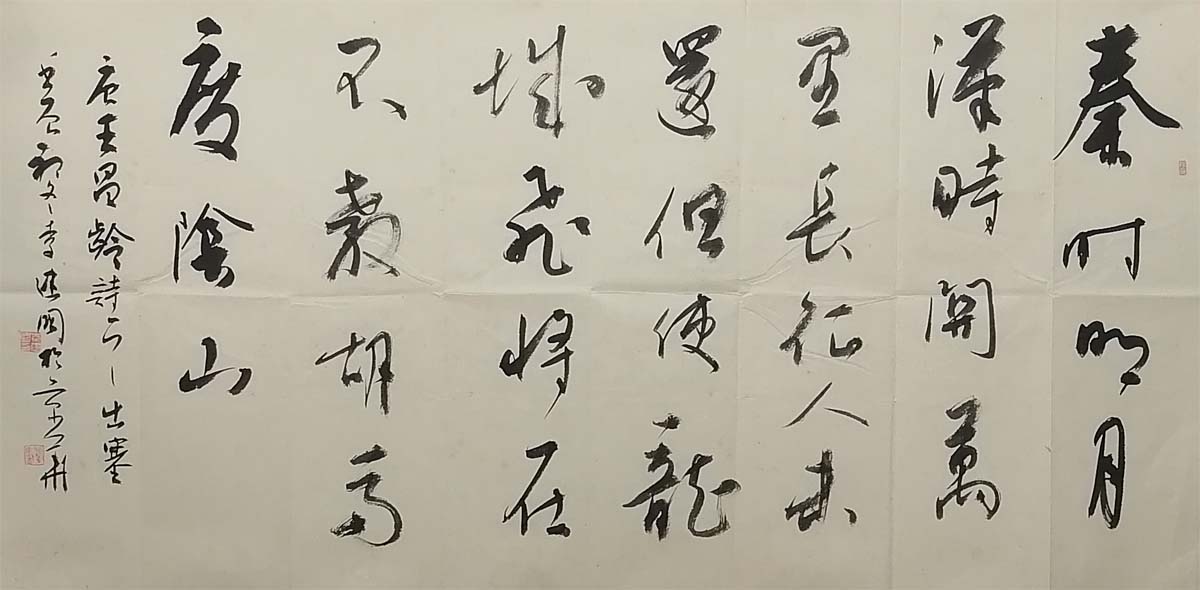 秦时明月
漢時關萬
里長征人未
還但使龍
城飛將在
不教胡馬
度陰山
唐王昌齡詩一首出塞
初冬李